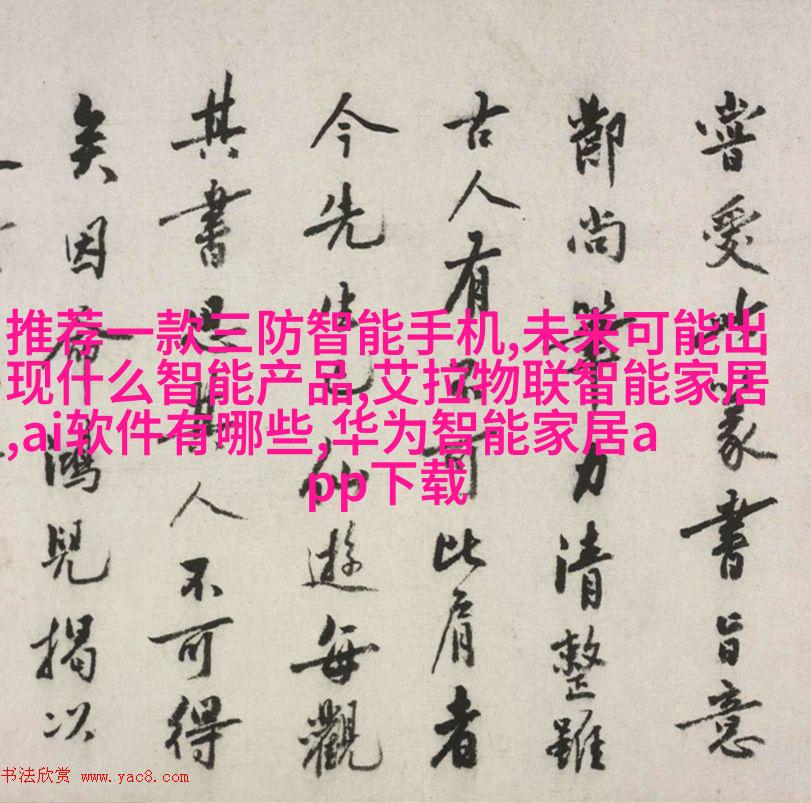 推荐一款三防智能手机,未来可能出
现什么智能产品,艾拉物联智能家居
,ai软件有哪些,华为智能家居a
pp下载
嘗愛此篆書旨意
鄭尚筆力清整雖
古人有不可比肩者
今先生已仙遊每觀
其書思其人不可得
矣因命鴻兒揭以
书法欣赏 www.yac8.com